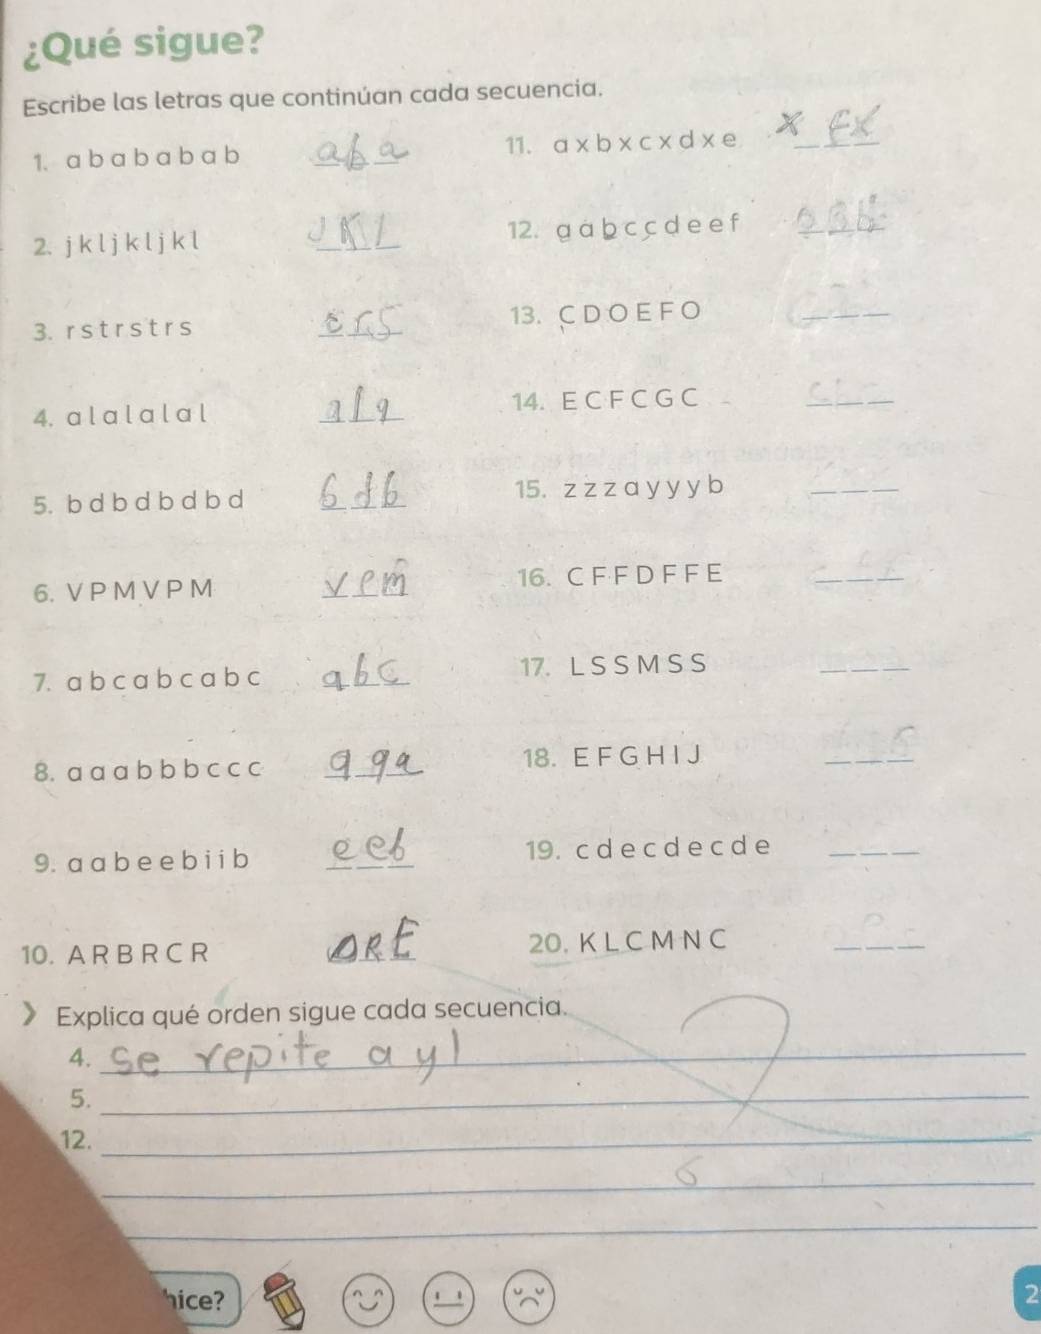 ¿Qué sigue?
Escribe las letras que continúan cada secuencia.
1. a b a b a b a b a b a
2. j k l j k l j k l J K L
3. r s t r s t r s t r s
4. a l a l a l a l a l a
5. b d b d b d b d b d b
6. V P M V P M v p m
7. a b c a b c a b c a b c
8. a a a b b b c c c a a a
9. a a b e e b i i b e e b
10. A R B R C R D R E
11. a x b x c x d x e x F x
12. a a b c c d e e f
13. C D O E F O
14. E C F C G C
15. z z z a y y y b
16. C F F D F F E
17. L S S M S S
18. E F G H I J
19. c d e c d e c d e
20. K L C M N C
Explica qué orden sigue cada secuencia.
4. se repite a y l
5.
12.
hice?
2